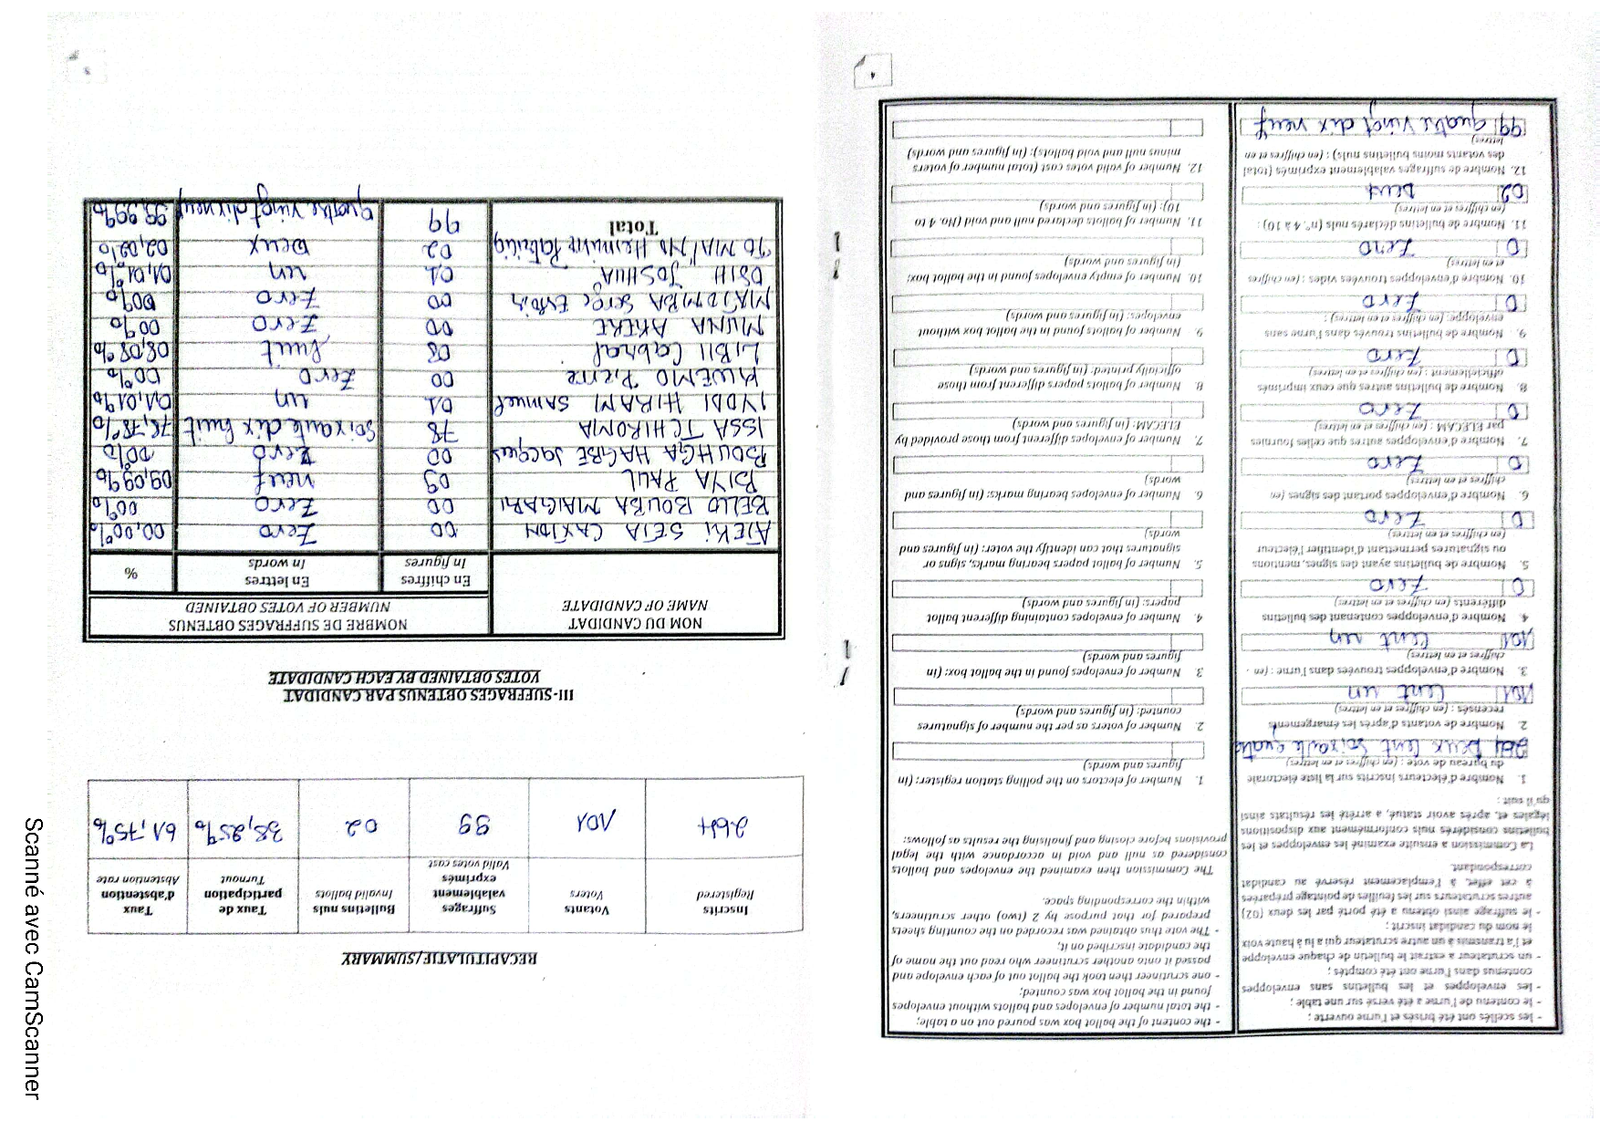 - les scellés ont été brisés et l'urne ouverte ;
- le contenu de l'urne a été versé sur une table ;
- les enveloppes et les bulletins sans enveloppes
contenus dans l'urne ont été comptés ;
- un scrutateur a extrait le bulletin de chaque enveloppe
et l'a transmis à un autre scrutateur qui a lu à haute voix
le nom du candidat inscrit ;
- le suffrage ainsi obtenu a été porté par les deux (02)
autres scrutateurs sur les feuilles de pointage préparées
à cet effet, à l'emplacement réservé au candidat
correspondant.
La Commission a ensuite examiné les enveloppes et les
bulletins considérés nuls conformément aux dispositions
légales et, après avoir statué, a arrêté les résultats ainsi
qu'il suit :
1. Nombre d'électeurs inscrits sur la liste électorale
du bureau de vote : (en chiffres et en lettres)
264 Deux Cent Soixante quatre
2. Nombre de votants d'après les émargements
recensés : (en chiffres et en lettres)
101 Cent un
3. Nombre d'enveloppes trouvées dans l'urne : (en
chiffres et en lettres)
101 Cent un
4. Nombre d'enveloppes contenant des bulletins
différents (en chiffres et en lettres)
0 Zero
5. Nombre de bulletins ayant des signes, mentions
ou signatures permettant d'identifier l'électeur
(en chiffres et en lettres)
0 Zero
6. Nombre d'enveloppes portant des signes (en
chiffres et en lettres)
0 Zero
7. Nombre d'enveloppes autres que celles fournies
par ELECAM : (en chiffres et en lettres)
0 Zero
8. Nombre de bulletins autres que ceux imprimés
officiellement : (en chiffres et en lettres)
0 Zero
9. Nombre de bulletins trouvés dans l'urne sans
enveloppe: (en chiffres et en lettres) :
0 Zero
10. Nombre d'enveloppes trouvées vides : (en chiffres
et en lettres)
0 Zero
11. Nombre de bulletins déclarés nuls (n°. 4 à 10) :
(en chiffres et en lettres)
02 Deux
12. Nombre de suffrages valablement exprimés (total
des votants moins bulletins nuls) : (en chiffres et en
lettres)
99 quatre vingt dix neuf
- the content of the ballot box was poured out on a table;
- the total number of envelopes and ballots without envelopes
found in the ballot box was counted;
- one scrutineer then took the ballot out of each envelope and
passed it onto another scrutineer who read out the name of
the candidate inscribed on it;
- The vote thus obtained was recorded on the counting sheets
prepared for that purpose by 2 (two) other scrutineers,
within the corresponding space.
The Commission then examined the envelopes and ballots
considered as null and void in accordance with the legal
provisions before closing and finalising the results as follows:
1. Number of electors on the polling station register: (in
figures and words)
2 Number of voters as per the number of signatures
counted: (in figures and words)
3 Number of envelopes found in the ballot box: (in
figures and words)
4. Number of envelopes containing different ballot
papers: (in figures and words)
5. Number of ballot papers bearing marks, signs or
signatures that can identify the voter: (in figures and
words)
6. Number of envelopes bearing marks: (in figures and
words)
7. Number of envelopes different from those provided by
ELECAM: (in figures and words)
8. Number of ballots papers different from those
officially printed: (in figures and words)
9. Number of ballots found in the ballot box without
envelopes: (in figures and words)
10. Number of empty envelopes found in the ballot box:
(in figures and words)
11. Number of ballots declared null and void (No. 4 to
10): (in figures and words)
12. Number of valid votes cast (total number of voters
minus null and void ballots): (in figures and words)
4
RECAPITULATIF/SUMMARY
Inscrits Registered | Votants Voters | Suffrages valablement exprimés Valid votes cast | Bulletins nuls Invalid ballots | Taux de participation Turnout | Taux d'abstention Abstention rate
264 | 101 | 99 | 02 | 38,25% | 61,75%
III- SUFFRAGES OBTENUS PAR CANDIDAT
VOTES OBTAINED BY EACH CANDIDATE
NOM DU CANDIDAT NAME OF CANDIDATE | NOMBRE DE SUFFRAGES OBTENUS NUMBER OF VOTES OBTAINED
En chiffres In figures | En lettres In words | %
ATEKI SETA CAXTON 00 Zero 00,00%
BELLO BOUBA MAIGARI 00 Zero 00%
BIYA PAUL 09 neuf 09,09%
BOUHGA HAGBE Jacques 00 zero 00%
ISSA TCHIROMA 78 Soixante dix huit 78,78%
IYODI HIRAM Samuel 01 un 01,01%
KWEMO Pierre 00 Zero 00%
LIBII Cabral 08 huit 08,08%
MUNA AKERE 00 Zero 00%
MATOMBA Serge Espoir 00 Zero 00%
OSIH JOSHUA 01 un 01,01%
TOMAI'NO Hermine Patricia 02 Deux 02,02%
Total 99 quatre vingt dix neuf 99,99%
5
Scanné avec CamScanner